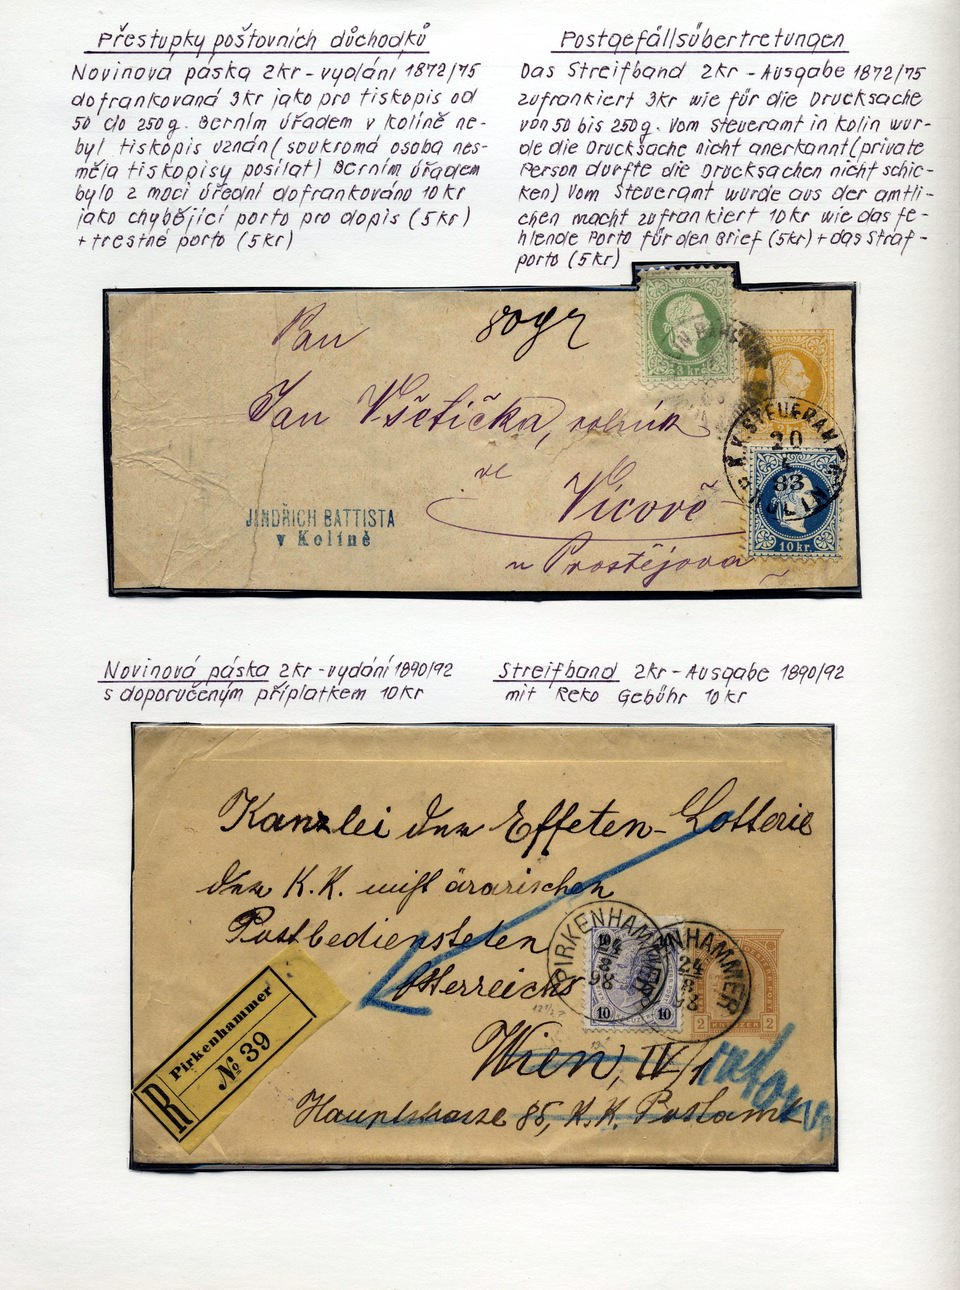 Přestupky poštovních důchodků
Novinová páska 2kr - vydání 1872/75
dofrankovaná 3kr jako pro tiskopis od
50 do 250g. Berním úřadem v Kolíně ne-
byl tiskopis uznán (soukromá osoba nes-
měla tiskopisy posílat) Berním úřadem
bylo z moci úřední dofrankováno 10kr
jako chybějící porto pro dopis (5kr)
+ trestné porto (5kr)
Postgefällsübertretungen
Das Streifband 2kr - Ausgabe 1872/75
zufrankiert 3kr wie für die Drucksache
von 50 bis 250g. Vom Steueramt in Kolin wur-
de die Drucksache nicht anerkannt (private
Person durfte die Drucksachen nicht schic-
ken) Vom Steueramt wurde aus der amtli-
chen macht zufrankiert 10kr wie das fe-
hlende Porto für den Brief (5kr) + das Straf-
porto (5kr)
Pan
80gr
3 kr.
Jan Všetička, rolník
ve
Vícově
u Prostějova
JINDŘICH BATTISTA
v Kolíně
K.K. STEUERAMT
20
83
KOLIN
10 kr.
Novinová páska 2kr - vydání 1890/92
s doporučeným příplatkem 10kr
Streifband 2kr - Ausgabe 1890/92
mit Reko Gebühr 10kr
Kanzlei der Effeten-Lotterie
der K.K. nicht ärarischen
Postbediensteten
Österreichs
Wien, IV/1
Hauptstrasse 85, K.K. Postamt
PIRKENHAMMER
24
8
98
10 10
PIRKENHAMMER
24
8
98
2 KREUZER 2
R Pirkenhammer
No 39